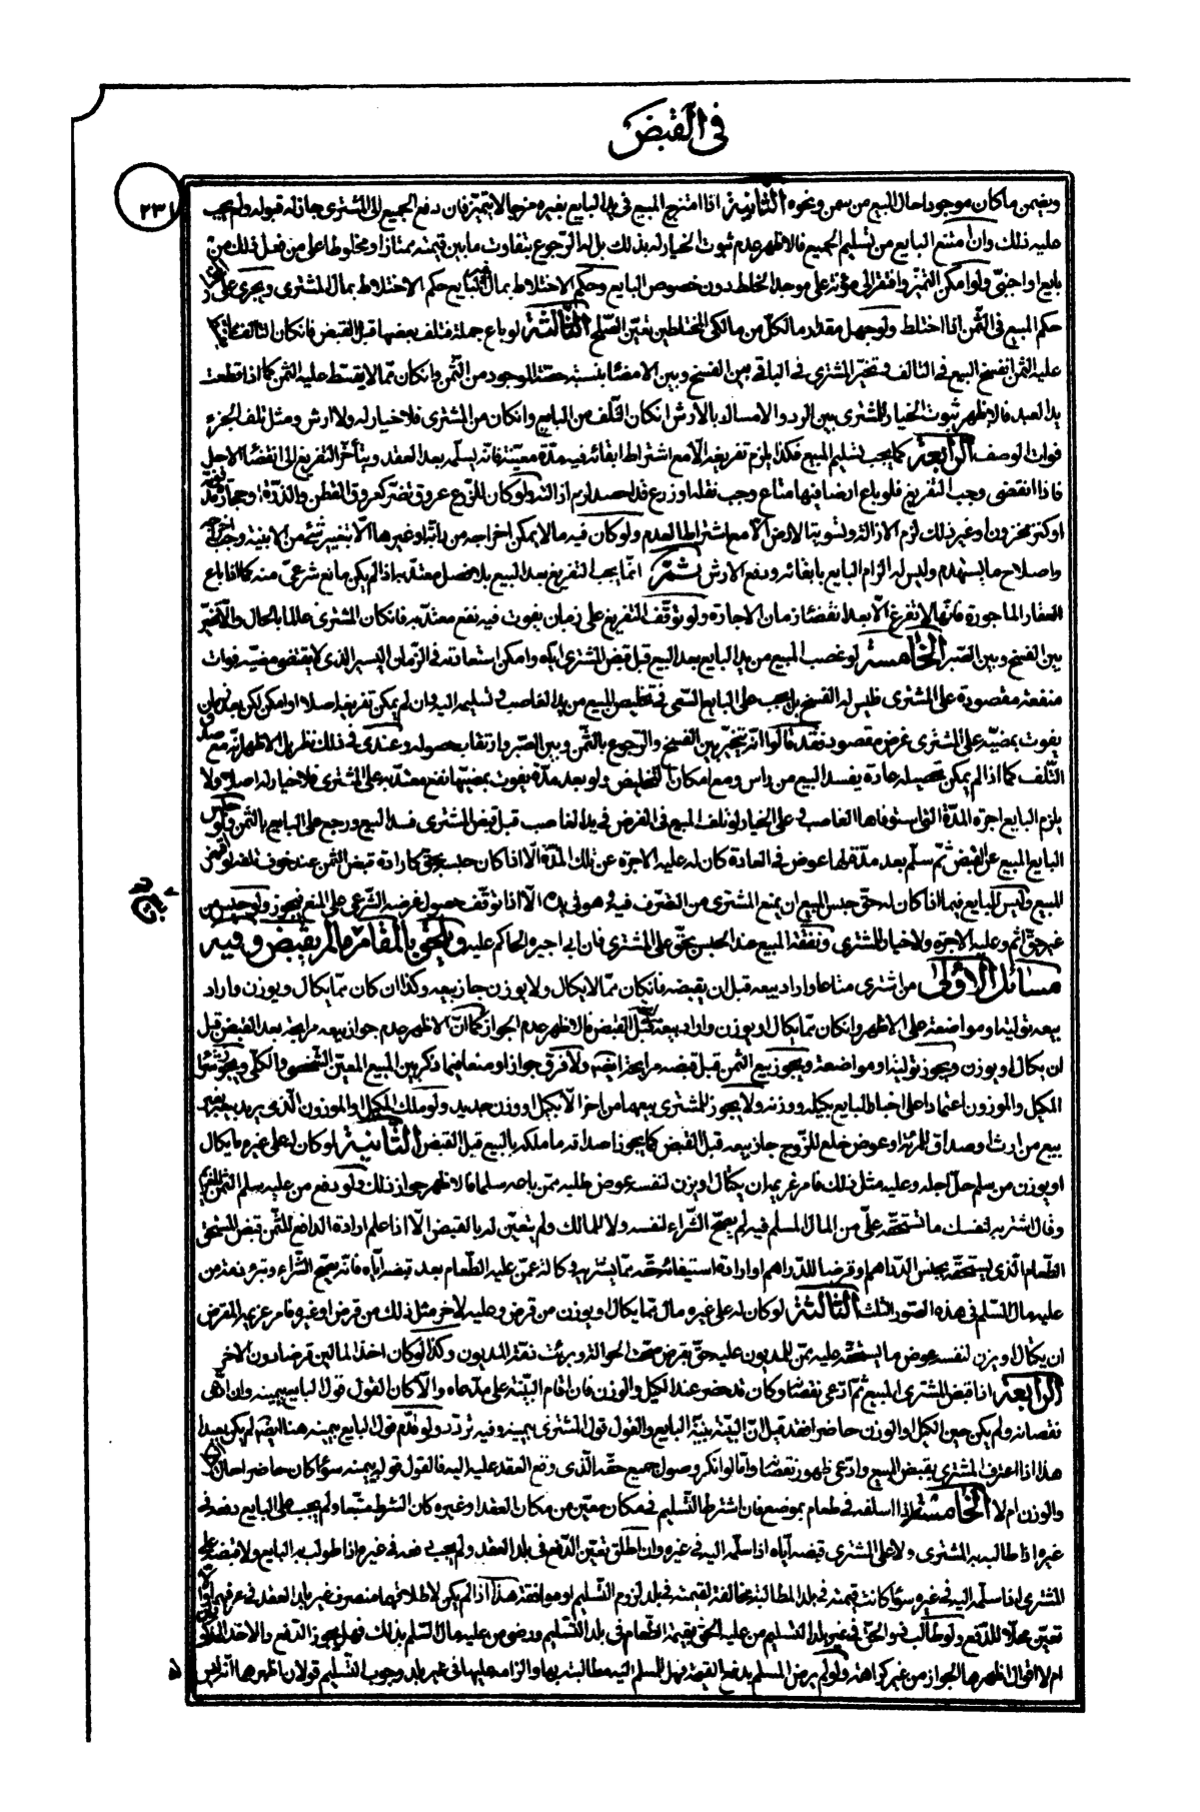 في القبض
٢٣١
ويضمن ما كان موجودا حال المبيع من سمن ونحوه الثانية اذا امتزج المبيع في يد البايع بغيره مزجا لا يتميز فان دفع الجميع الى المشترى جاز له قبوله ولم يجب
عليه ذلك وان امتنع البايع من تسليم الجميع فالاظهر عدم ثبوت الخيار له بذلك بل له الرجوع بتفاوت ما بين قيمته ممتازا ومخلوطا على من فعل ذلك من
بايع او اجنبي ولو امكن التميز وافتقر الى مؤنة على موجد الخلط دون خصوص البايع وحكم الاختلاط بمال البايع حكم الاختلاط بمال المشترى ويجرى على
حكم المبيع في الثمن اذا اختلط ولو جهل مقدار مال كل من مالكي المختلطين تعين الصلح الثالثة لو باع جملة فتلف بعضها قبل القبض فان كان التالف مما
عليه الثمن انفسخ البيع في التالف وتخير المشترى في الباقي بين الفسخ وبين الامضاء بنسبة حصة الموجود من الثمن وان كان مما لا يقسط عليه الثمن كما اذا قطعت
يد العبد فالاظهر ثبوت الخيار للمشترى بين الرد والامساك بالارش ان كان التلف من البايع وان كان من المشترى فلا خيار له ولا ارش ومثل تلف الجزء
فوات الوصف الرابعة كما يجب تسليم المبيع فكذا يلزم تفريغه الا مع اشتراط ابقائه فيه مدة معينة فانه يسلمه بعد العقد ويتأخر التفريغ الى انقضاء الاجل
فاذا انقضى وجب التفريغ فلو باع ارضا فيها متاع وجب نقله او زرع قد احصد لزم ازالته ولو كان للزرع عروق تضر كعروق القطن والذرة او حجارة
او كنز مخزون او غير ذلك لزم الازالة وتسوية الارض الا مع اشتراط العدم ولو كان فيه ما لا يمكن اخراجه من دابة او غيرها الا بتغيير شئ من الابنية وجب اخراجه
واصلاح ما يستهدم وليس له الزام البايع بابقائه ودفع الارش ثم انما يجب التفريغ بعد البيع بلا فصل معتد به اذا لم يكن مانع شرعي منه كما اذا باع
العقار الماجورة فانها لا تفرغ الا بعد انقضاء زمان الاجارة ولو توقف التفريغ على زمان يفوت فيه نفع معتد به فان كان المشترى عالما بالحال والا تخير
بين الفسخ وبين الصبر الخامسة لو غصب المبيع من يد البايع بعد البيع قبل قبض المشترى اياه وامكن استعادته في الزمان اليسير الذى لا يقتضى مضيه فوات
منفعة مقصودة على المشترى فليس له الفسخ بل يجب على البايع السعى في تخليص المبيع من يد الغاصب وتسليمه اليه وان لم يمكن تفريغه اصلا او امكن لكن بعد زمان
يفوت بمضيه على المشترى غرض مقصود فقد قالوا انه يتخير بين الفسخ والرجوع بالثمن وبين الصبر وارتقاب حصوله وعندى في ذلك نظر بل الاظهر انه مع صدق
التلف كما اذا لم يمكن تحصيله عادة يفسد البيع من راس ومع امكان التخليص ولو بعد مدة يفوت بمضيها نفع معتد به على المشترى فلا خيار له اصلا ولا
يلزم البايع اجرة المدة التي استوفاها الغاصب وعلى الخيار لو تلف المبيع في الفرض في يد الغاصب قبل قبض المشترى فسد البيع ورجع على البايع بالثمن ولو حبس
البايع المبيع عن القبض ثم سلم بعد مدة لها عوض في العادة كان له عليه الاجرة عن تلك المدة الا اذا كان حبسه بحق كارادة قبض الثمن عند خوف تلفه لو اقبض
المبيع وليس للبايع فيما اذا كان له حق حبس المبيع ان يمنع المشترى من التصرف فيه وهو في يده الا اذا توقف حصول غرضه الشرعي على المنع فيجوز ولو حبس من
غير حق اثم وعليه الاجرة ولا خيار للمشترى ونفقة المبيع عند الحبس بحق على المشترى فان ابى اجبره الحاكم عليه ويلحق بالمقام بيع ما لم يقبض وفيه
مسائل الاولى من اشترى متاعا واراد بيعه قبل ان يقبضه فان كان مما لا يكال ولا يوزن جاز بيعه وكذا ان كان مما يكال ويوزن واراد
بيعه تولية او مواضعة على الاظهر وان كان مما يكال او يوزن واراد بيعه قبل القبض فالاظهر عدم الجواز كما ان الاظهر عدم جواز بيعه مرابحة بعد القبض قبل
ان يكال او يوزن ويجوز تولية او مواضعة ويجوز بيع الثمن قبل قبضه مرابحة ايضا ولا فرق جوازا ومنعا فيما ذكر بين المبيع المعين الشخصي والكلي ويجوز شراء
المكيل والموزون اعتمادا على اخبار البايع بكيله ووزنه ولا يجوز للمشترى بيعهما من اخر الا بكيل او وزن جديد ولو ملك المكيل او الموزون الذى يريد بيعه بغير
بيع من ارث او صداق للمرأة او عوض خلع للزوج جاز بيعه قبل القبض كما يجوز اصداقه ما ملكه بالبيع قبل القبض الثانية لو كان له على غيره ما يكال
او يوزن من سلم حل اجله وعليه مثل ذلك فامر غريمه ان يكتال او يزن لنفسه عوض طلبه ممن باعه سلما فالاظهر جواز ذلك ولو دفع من عليه سلم الثمن
وقال اشتر به لنفسك ما تستحقه علي من المال المسلم فيه لم يصح الشراء لنفسه ولا للمالك ولم يتعين له بالقبض الا اذا علم ارادة الدافع للثمن قبض المستحق
الطعام الذى يستحقه بجنس الدراهم او قرضا للدراهم او ارادة استيفائه حقه مما يشتريه وكالة عمن عليه الطعام بعد قبضه اياه فانه يصح الشراء وتبرء ذمة من
عليه مال السلم في هذه الصور الثلث الثالثة لو كان له على غيره مال مما يكال او يوزن من قرض وعليه لاخر مثل ذلك من قرض او غيره فامر غريمه المقرض
ان يكتال او يزن لنفسه عوض ما يستحقه عليه ممن للمديون عليه حق بقرض صحت الحوالة وبرئت ذمة المديون وكذا لو كان احد المالين قرضا دون الاخر
الرابعة اذا قبض المشترى المبيع ثم ادعى نقصا وكان قد حضر عند الكيل والوزن فان اقام البينة على مدعاه والا كان القول قول البايع بيمينه وان ادعى
نقصانه ولم يكن حين الكيل او الوزن حاضرا فقد قيل ان البينة بينة البايع والقول قول المشترى بيمينه وفيه تردد ولو قدم قول البايع بيمينه هنا ايضا لم يكن بعيدا
هذا اذا اعترف المشترى بقبض المبيع وادعى ظهور نقصه واما لو انكر وصول جميع حقه الذى وقع العقد عليه اليه فالقول قوله بيمينه سواء كان حاضرا حال
والوزن ام لا الخامسة اذا اسلفه في طعام بموضع فان اشترط التسليم في مكان معين من مكان العقد او غيره كان الشرط متبعا ولم يجب على البايع دفعه في
غيره اذا طالبه به المشترى ولا على المشترى قبضه اياه اذا سلمه اليه في غيره وان اطلق تعين الدفع في بلد العقد ولم يجب دفعه في غيره اذا طولب به البايع ولا قبضه على
المشترى اذا سلمه اليه في غيره سواء كانت قيمته في بلد المطالبة مخالفة لقيمته في بلد لزوم التسليم او موافقة هذا اذا لم يكن لاطلاقهما منصرف غير بلد العقد في عرفهما والا
تعين محلا للدفع ولو طالب ذو الحق في غير بلد التسليم من عليه الحق بقيمة الطعام في بلد التسليم ورضى من عليه مال السلم بذلك فهل يجوز الدفع والاخذ
ام لا اقوال اظهرها الجواز من غير كراهة ولو لم يرض المسلم بدفع القيمة فهل للمسلم اليه مطالبته بها والزامه عليها في غير بلد وجوب التسليم قولان اظهرهما انه ليس